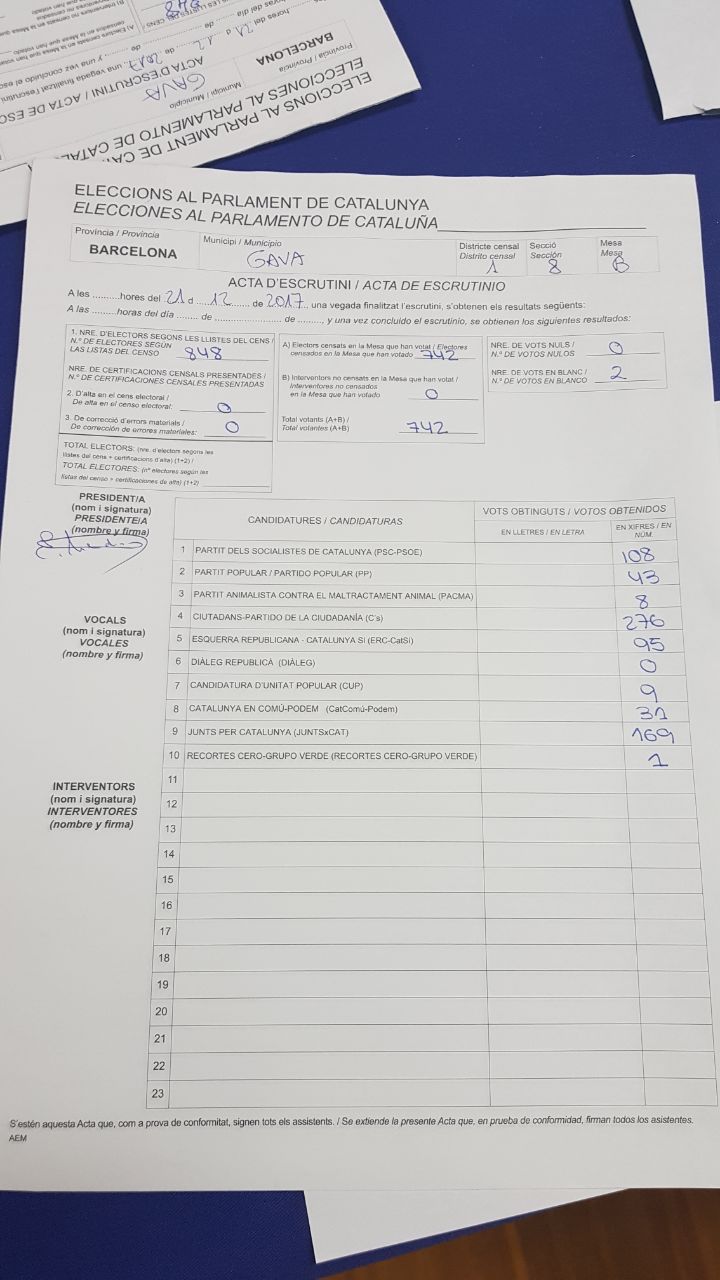 ELECCIONS AL PARLAMENT DE CATALUNYA
ELECCIONES AL PARLAMENTO DE CATALUÑA
Provincia / Provincia
BARCELONA
Municipi / Municipio
GAVA
Districte censal
Distrito censal
1
Secció
Sección
8
Mesa
Mesa
B
ACTA D'ESCRUTINI / ACTA DE ESCRUTINIO
A les ..........hores del 21 d ....12...... de 2017.., una vegada finalitzat l'escrutini, s'obtenen els resultats següents:
A las .........horas del día ........ de ........................ de ........., y una vez concluido el escrutinio, se obtienen los siguientes resultados:
1. NRE. D'ELECTORS SEGONS LES LLISTES DEL CENS /
N.º DE ELECTORES SEGÚN
LAS LISTAS DEL CENSO 848
NRE. DE CERTIFICACIONS CENSALS PRESENTADES /
N.º DE CERTIFICACIONES CENSALES PRESENTADAS
2. D'alta en el cens electoral /
De alta en el censo electoral: 0
3. De correcció d'errors materials /
De corrección de errores materiales: 0
TOTAL ELECTORS: (nre. d'electors segons les
llistes del cens + certificacions d'alta) (1+2) /
TOTAL ELECTORES: (nº electores según las
listas del censo + certificaciones de alta) (1+2)
A) Electors censats en la Mesa que han votat / Electores
censados en la Mesa que han votado 742
B) Interventors no censats en la Mesa que han votat /
Interventores no censados
en la Mesa que han votado 0
Total votants (A+B) /
Total votantes (A+B) 742
NRE. DE VOTS NULS /
N.º DE VOTOS NULOS 0
NRE. DE VOTS EN BLANC /
N.º DE VOTOS EN BLANCO 2
PRESIDENT/A
(nom i signatura)
PRESIDENTE/A
(nombre y firma)
VOCALS
(nom i signatura)
VOCALES
(nombre y firma)
INTERVENTORS
(nom i signatura)
INTERVENTORES
(nombre y firma)
CANDIDATURES / CANDIDATURAS
VOTS OBTINGUTS / VOTOS OBTENIDOS
EN LLETRES / EN LETRA
EN XIFRES / EN NÚM.
1 PARTIT DELS SOCIALISTES DE CATALUNYA (PSC-PSOE) 108
2 PARTIT POPULAR / PARTIDO POPULAR (PP) 43
3 PARTIT ANIMALISTA CONTRA EL MALTRACTAMENT ANIMAL (PACMA) 8
4 CIUTADANS-PARTIDO DE LA CIUDADANÍA (C's) 276
5 ESQUERRA REPUBLICANA - CATALUNYA SÍ (ERC-CatSí) 95
6 DIÀLEG REPUBLICÀ (DIÀLEG) 0
7 CANDIDATURA D'UNITAT POPULAR (CUP) 9
8 CATALUNYA EN COMÚ-PODEM (CatComú-Podem) 31
9 JUNTS PER CATALUNYA (JUNTSxCAT) 169
10 RECORTES CERO-GRUPO VERDE (RECORTES CERO-GRUPO VERDE) 1
11
12
13
14
15
16
17
18
19
20
21
22
23
S'estén aquesta Acta que, com a prova de conformitat, signen tots els assistents. / Se extiende la presente Acta que, en prueba de conformidad, firman todos los asistentes.
AEM